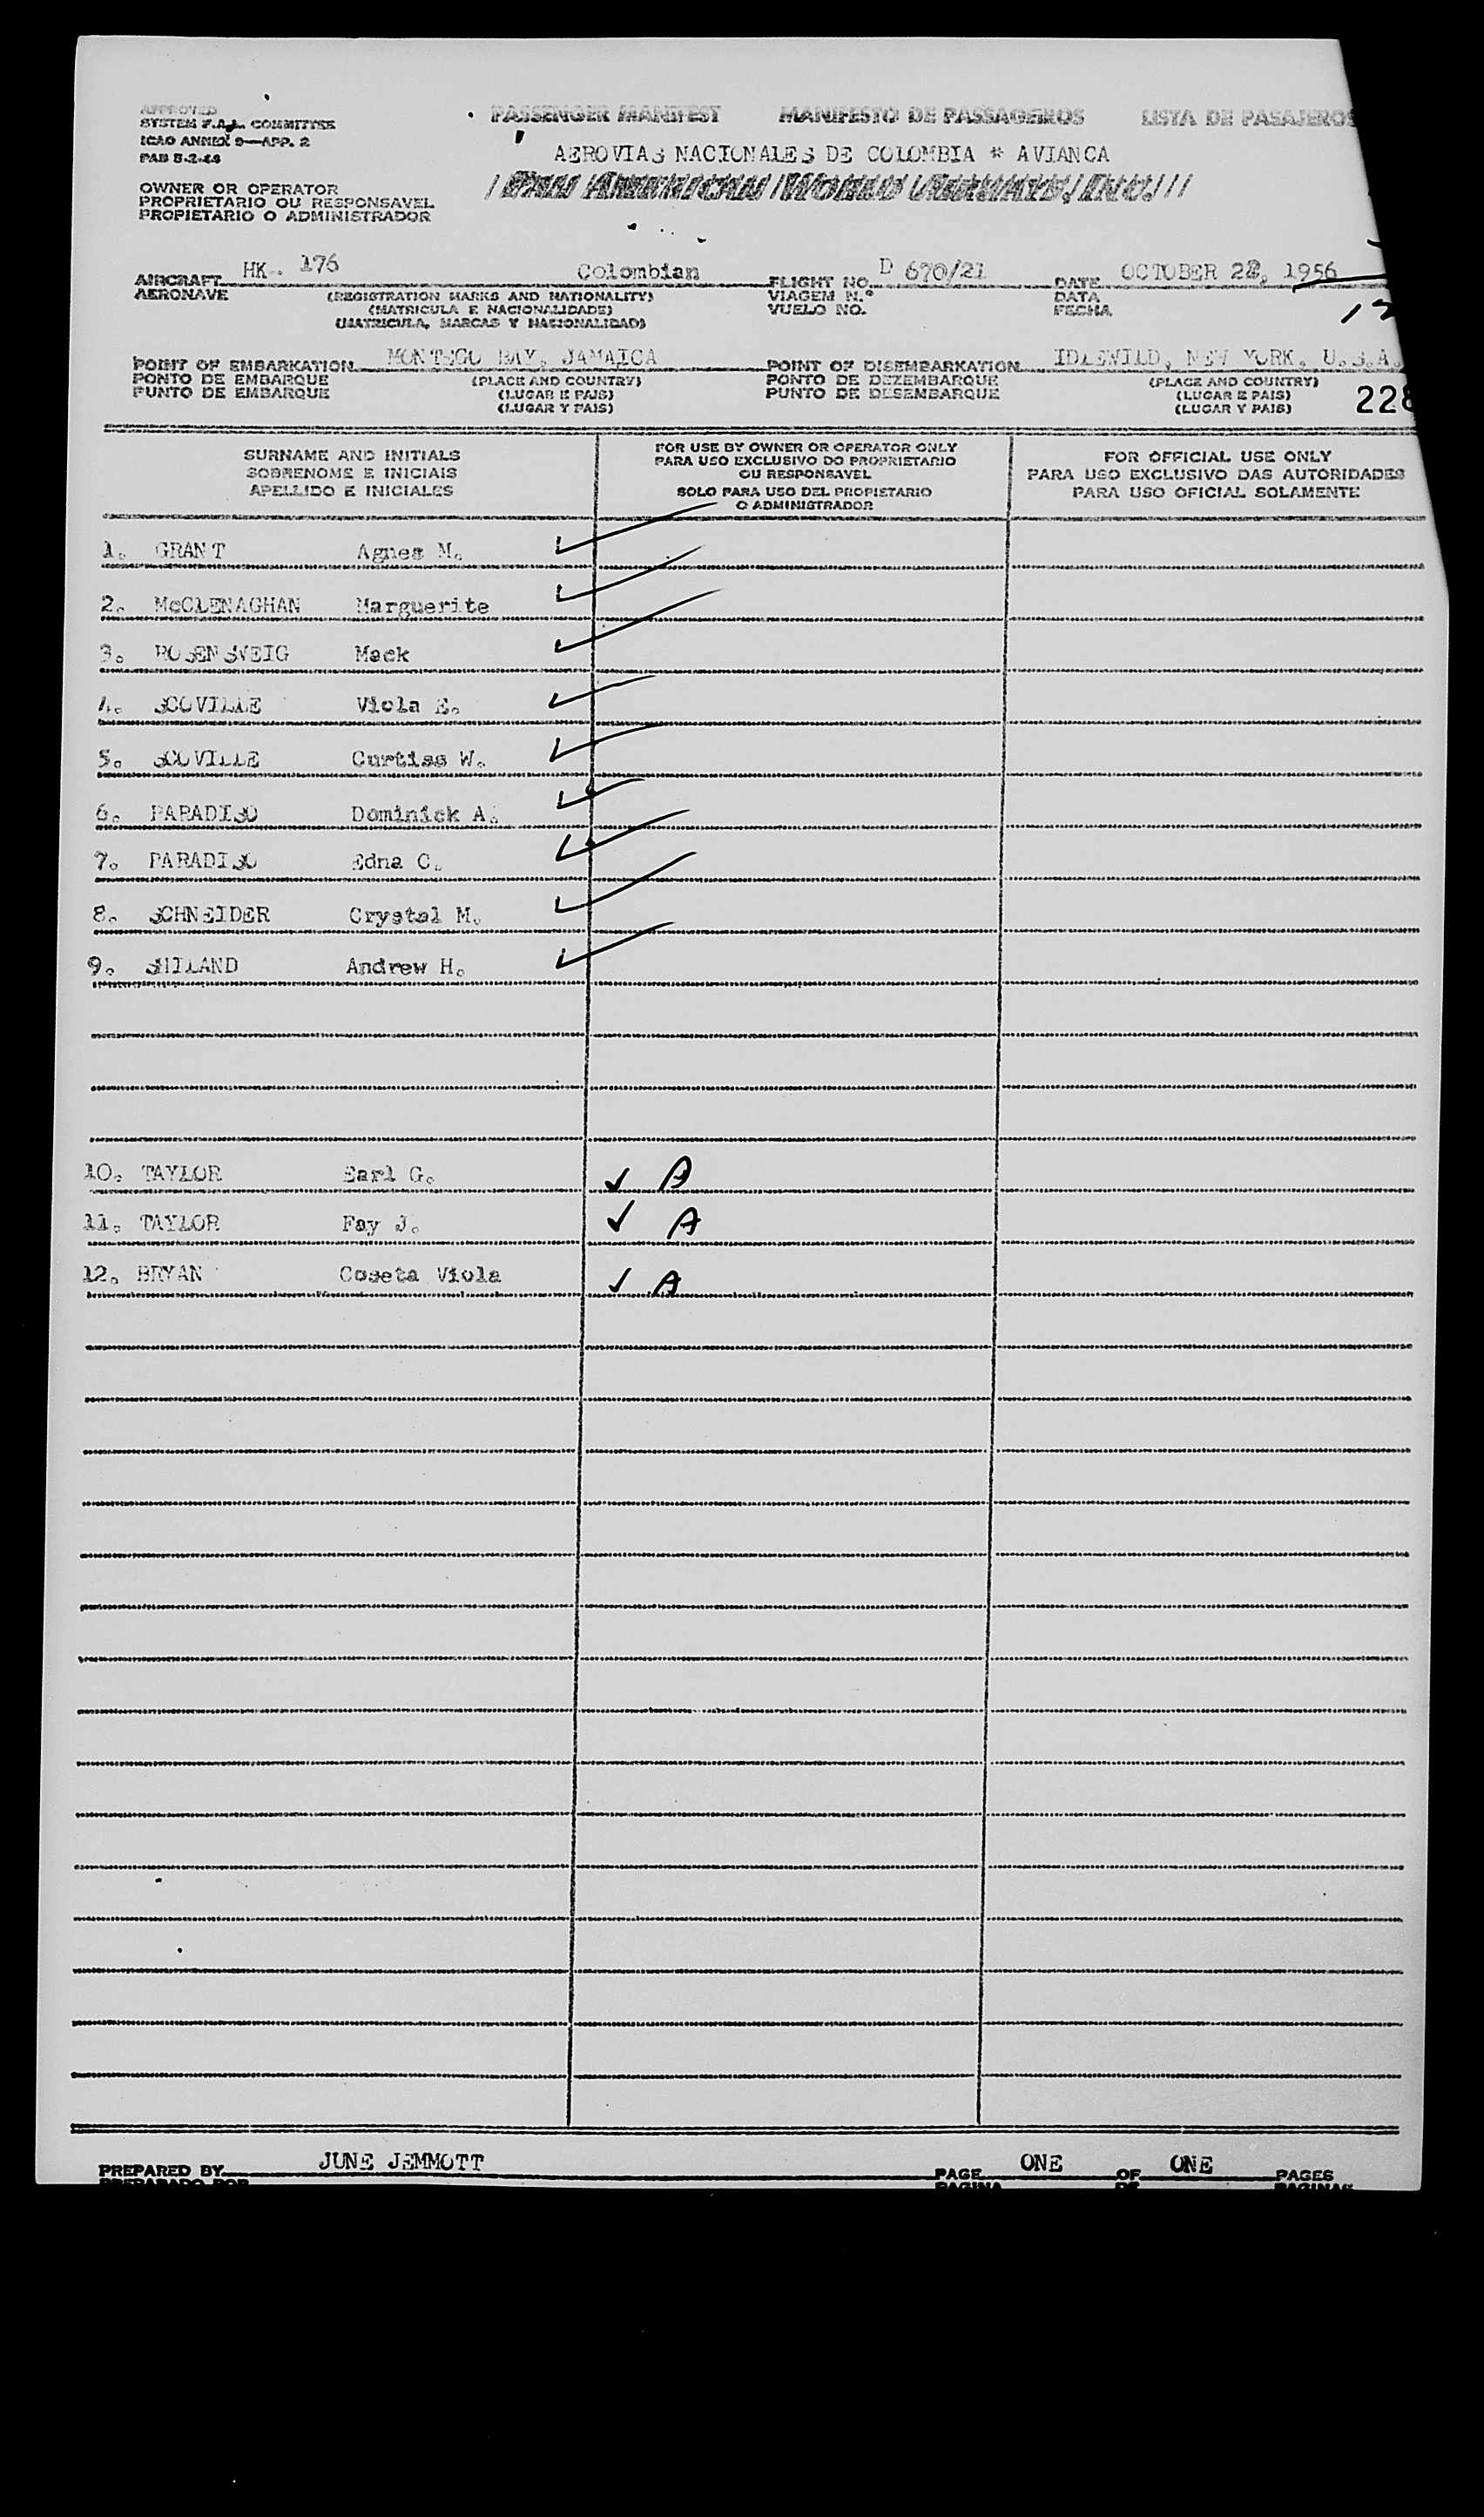 APPROVED
SYSTEM F.A.L. COMMITTEE
ICAO ANNEX 9—APP. 2
PAB 5-2-44
PASSENGER MANIFEST MANIFESTO DE PASSAGEIROS LISTA DE PASAJEROS
AEROVIAS NACIONALES DE COLOMBIA * AVIANCA
PAN AMERICAN WORLD AIRWAYS, INC.
OWNER OR OPERATOR
PROPRIETARIO OU RESPONSAVEL
PROPIETARIO O ADMINISTRADOR
AIRCRAFT HK-. 176 Colombian FLIGHT NO. D 670/21 DATE OCTOBER 22, 1956
AERONAVE (REGISTRATION MARKS AND NATIONALITY) VIAGEM N.º DATA
(MATRICULA E NACIONALIDADE) VUELO NO. FECHA
(MATRICULA, MARCAS Y NACIONALIDAD)
POINT OF EMBARKATION MONTEGO BAY, JAMAICA POINT OF DISEMBARKATION IDLEWILD, NEW YORK, U.S.A.
PONTO DE EMBARQUE (PLACE AND COUNTRY) PONTO DE DEZEMBARQUE (PLACE AND COUNTRY)
PUNTO DE EMBARQUE (LUGAR E PAIS) PUNTO DE DESEMBARQUE (LUGAR E PAIS) 228
(LUGAR Y PAIS) (LUGAR Y PAIS)
SURNAME AND INITIALS
SOBRENOME E INICIAIS
APELLIDO E INICIALES
FOR USE BY OWNER OR OPERATOR ONLY
PARA USO EXCLUSIVO DO PROPRIETARIO
OU RESPONSAVEL
SOLO PARA USO DEL PROPIETARIO
O ADMINISTRADOR
FOR OFFICIAL USE ONLY
PARA USO EXCLUSIVO DAS AUTORIDADES
PARA USO OFICIAL SOLAMENTE
1. GRANT Agnes M. ✓
2. McCLENAGHAN Marguerite ✓
3. ROSENSWEIG Mack ✓
4. SCOVILLE Viola E. ✓
5. SCOVILLE Curtiss W. ✓
6. PARADISO Dominick A. ✓
7. PARADISO Edna C. ✓
8. SCHNEIDER Crystal M. ✓
9. SHILAND Andrew H. ✓
10. TAYLOR Earl G. ✓ A
11. TAYLOR Fay J. ✓ A
12. BRYAN Coseta Viola ✓ A
PREPARED BY JUNE JEMMOTT PAGE ONE OF ONE PAGES
PREPARADO POR PAGINA DE PAGINAS